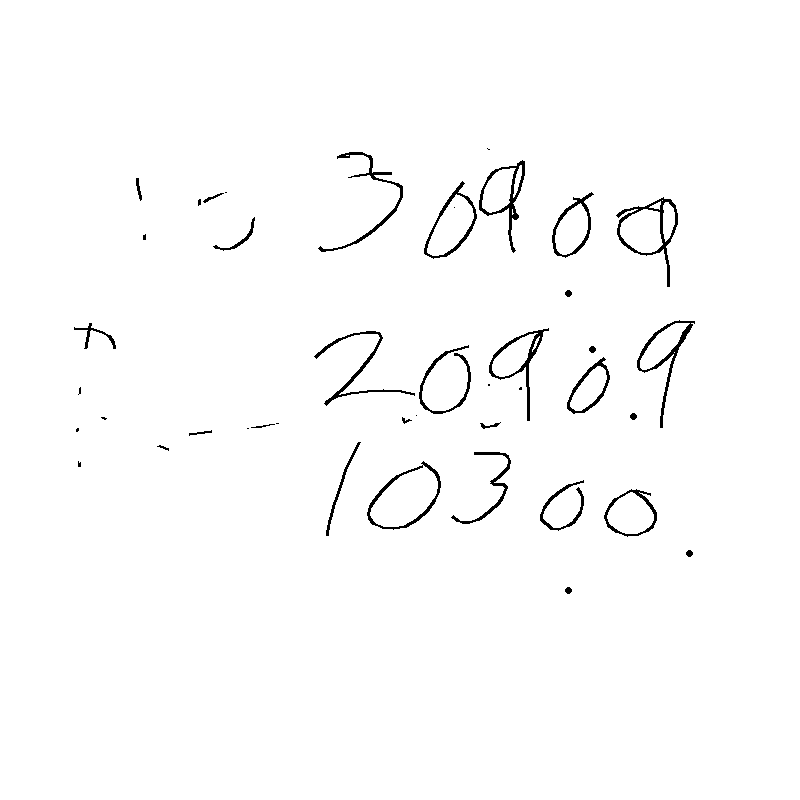 30909
20909
10300